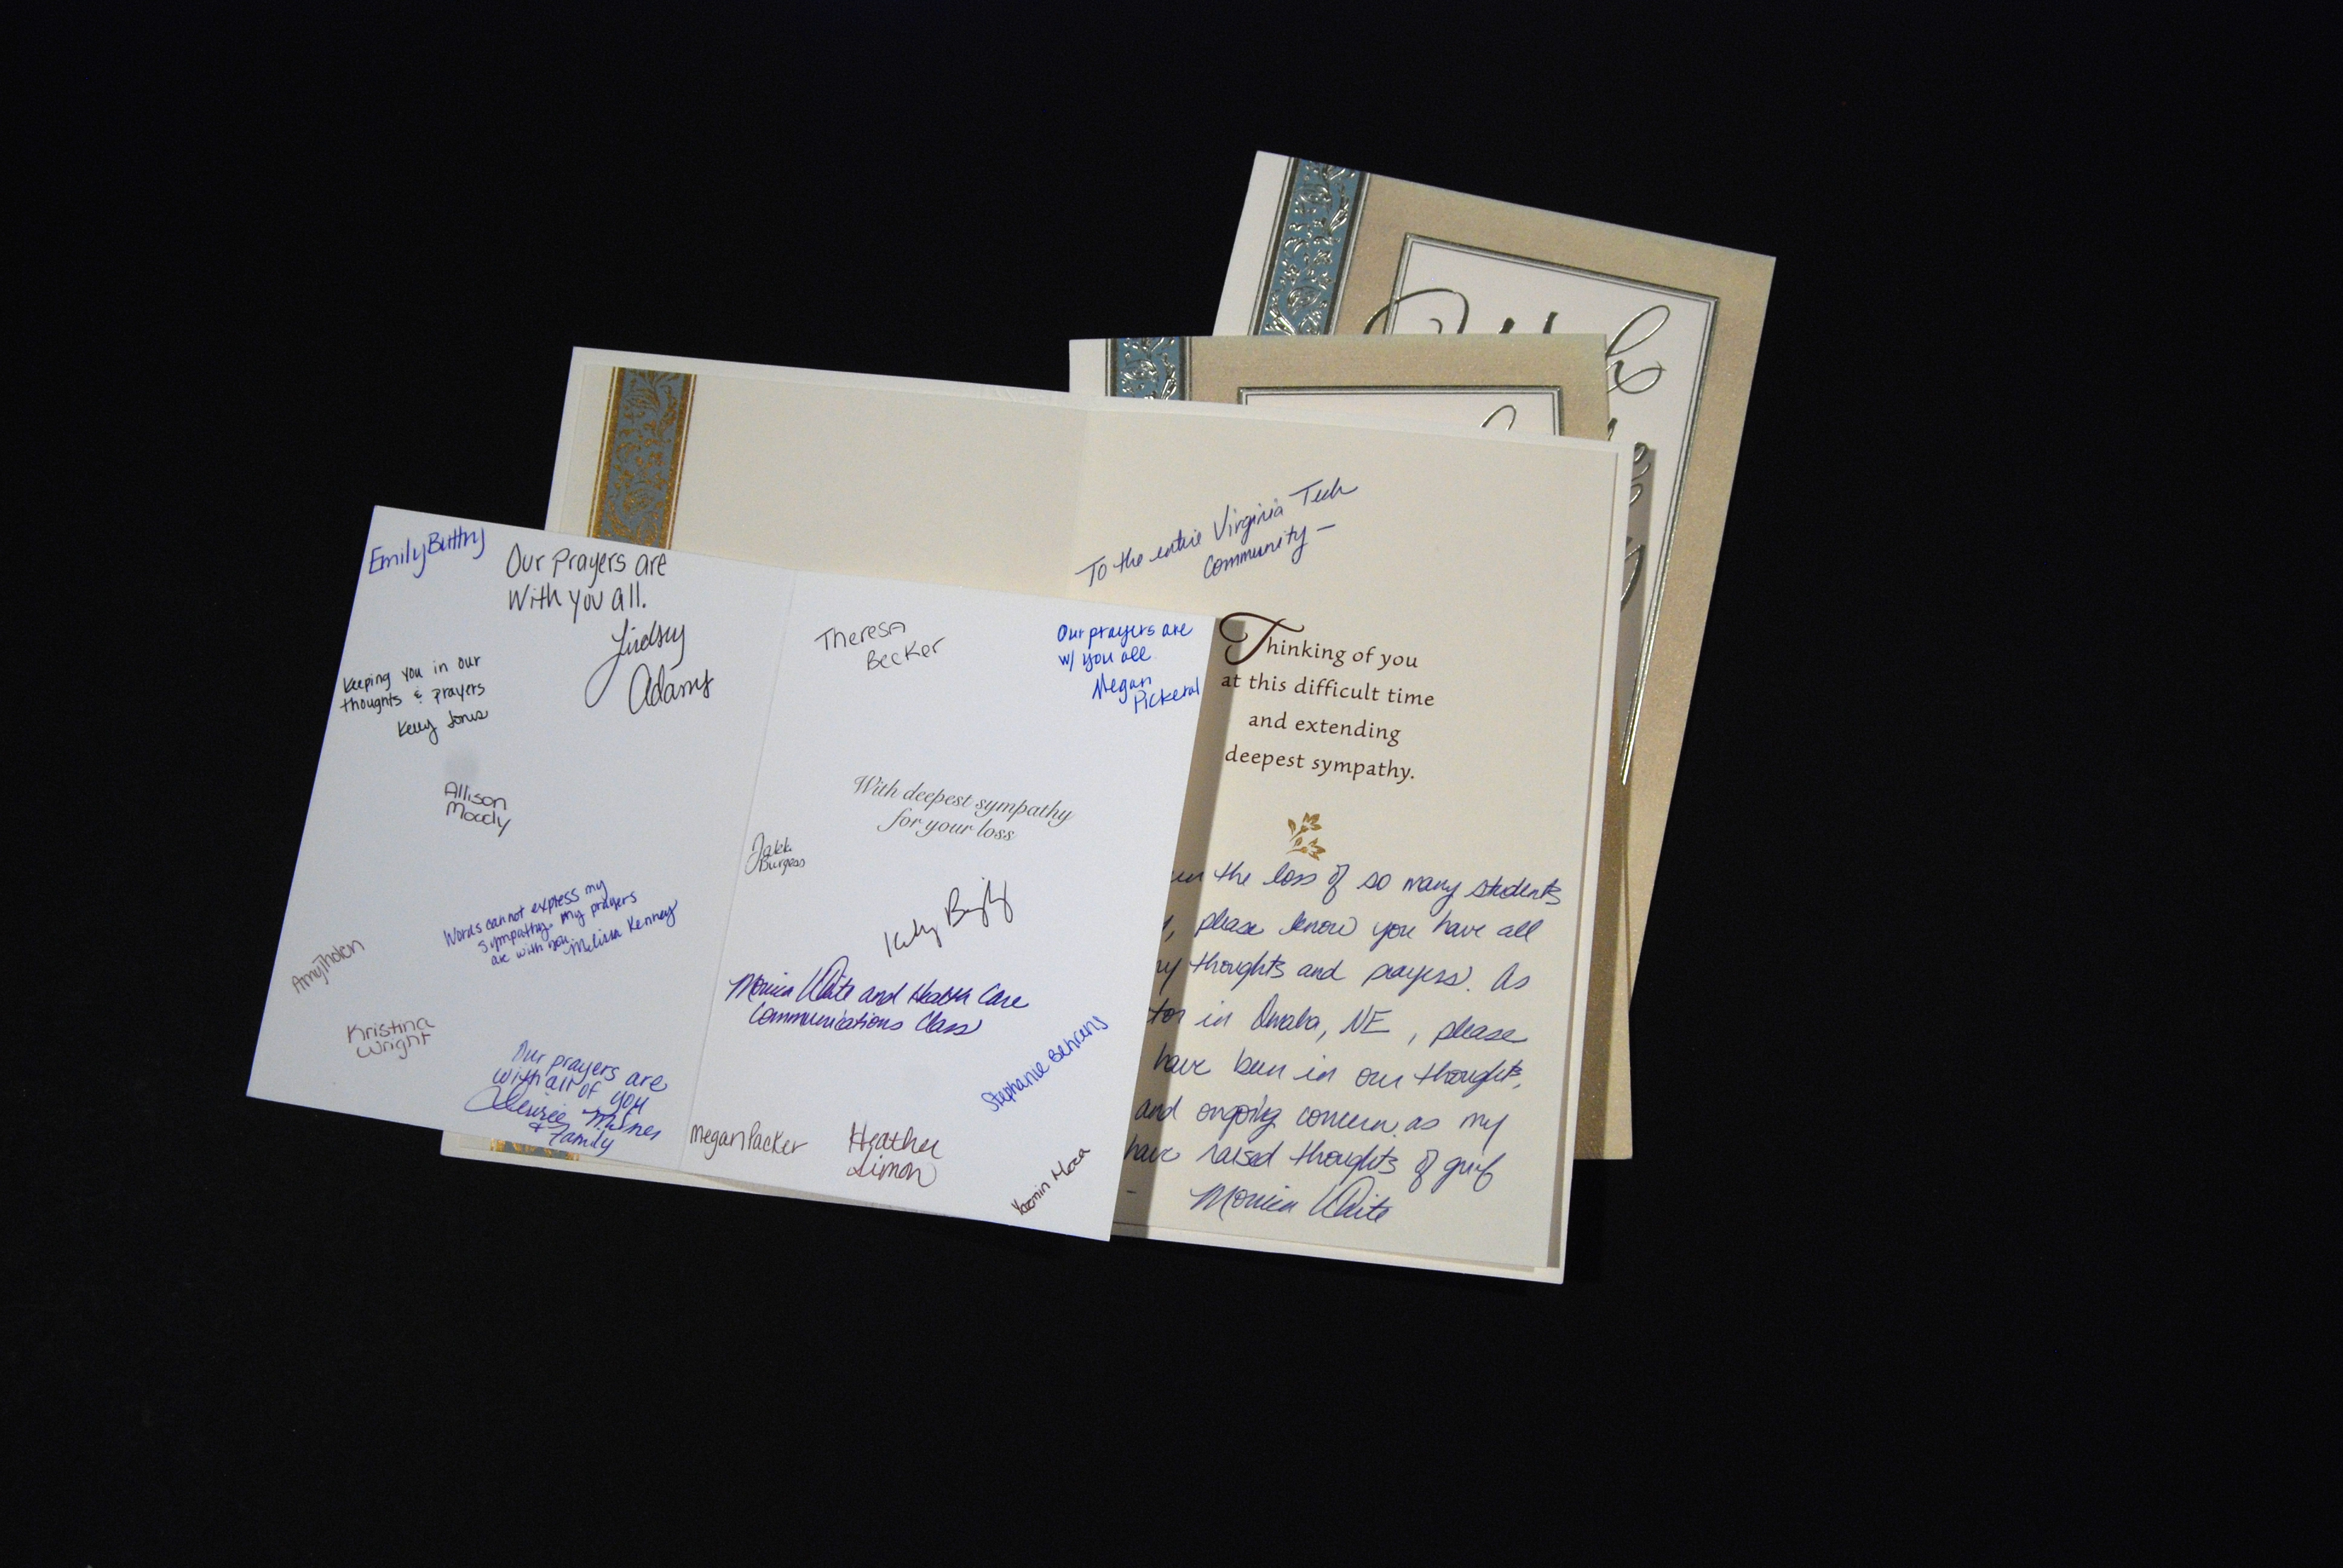 Emily Buttry
Our prayers are
with you all.
Lindsey
Adams
Keeping you in our
thoughts & prayers
Kelly Jones
Allison
Moody
Words cannot express my
sympathy. my prayers
are with you.
Melissa Kenney
Amy Tholen
Kristina
Wright
Our prayers are
with all of you
& Family
Theresa
Becker
Our prayers are
w/ you all
Megan
Pickeral
With deepest sympathy
for your loss
Burgess
Monica White and Health Care
Communications Class
Stephanie Behrens
Megan Packer
Heather
Limon
To the entire Virginia Tech
Community —
Thinking of you
at this difficult time
and extending
deepest sympathy.
the loss of so many students
please know you have all
thoughts and prayers. As
in Omaha, NE, please
have been in our thoughts,
and ongoing concern as my
have raised thoughts of grief
Monica White